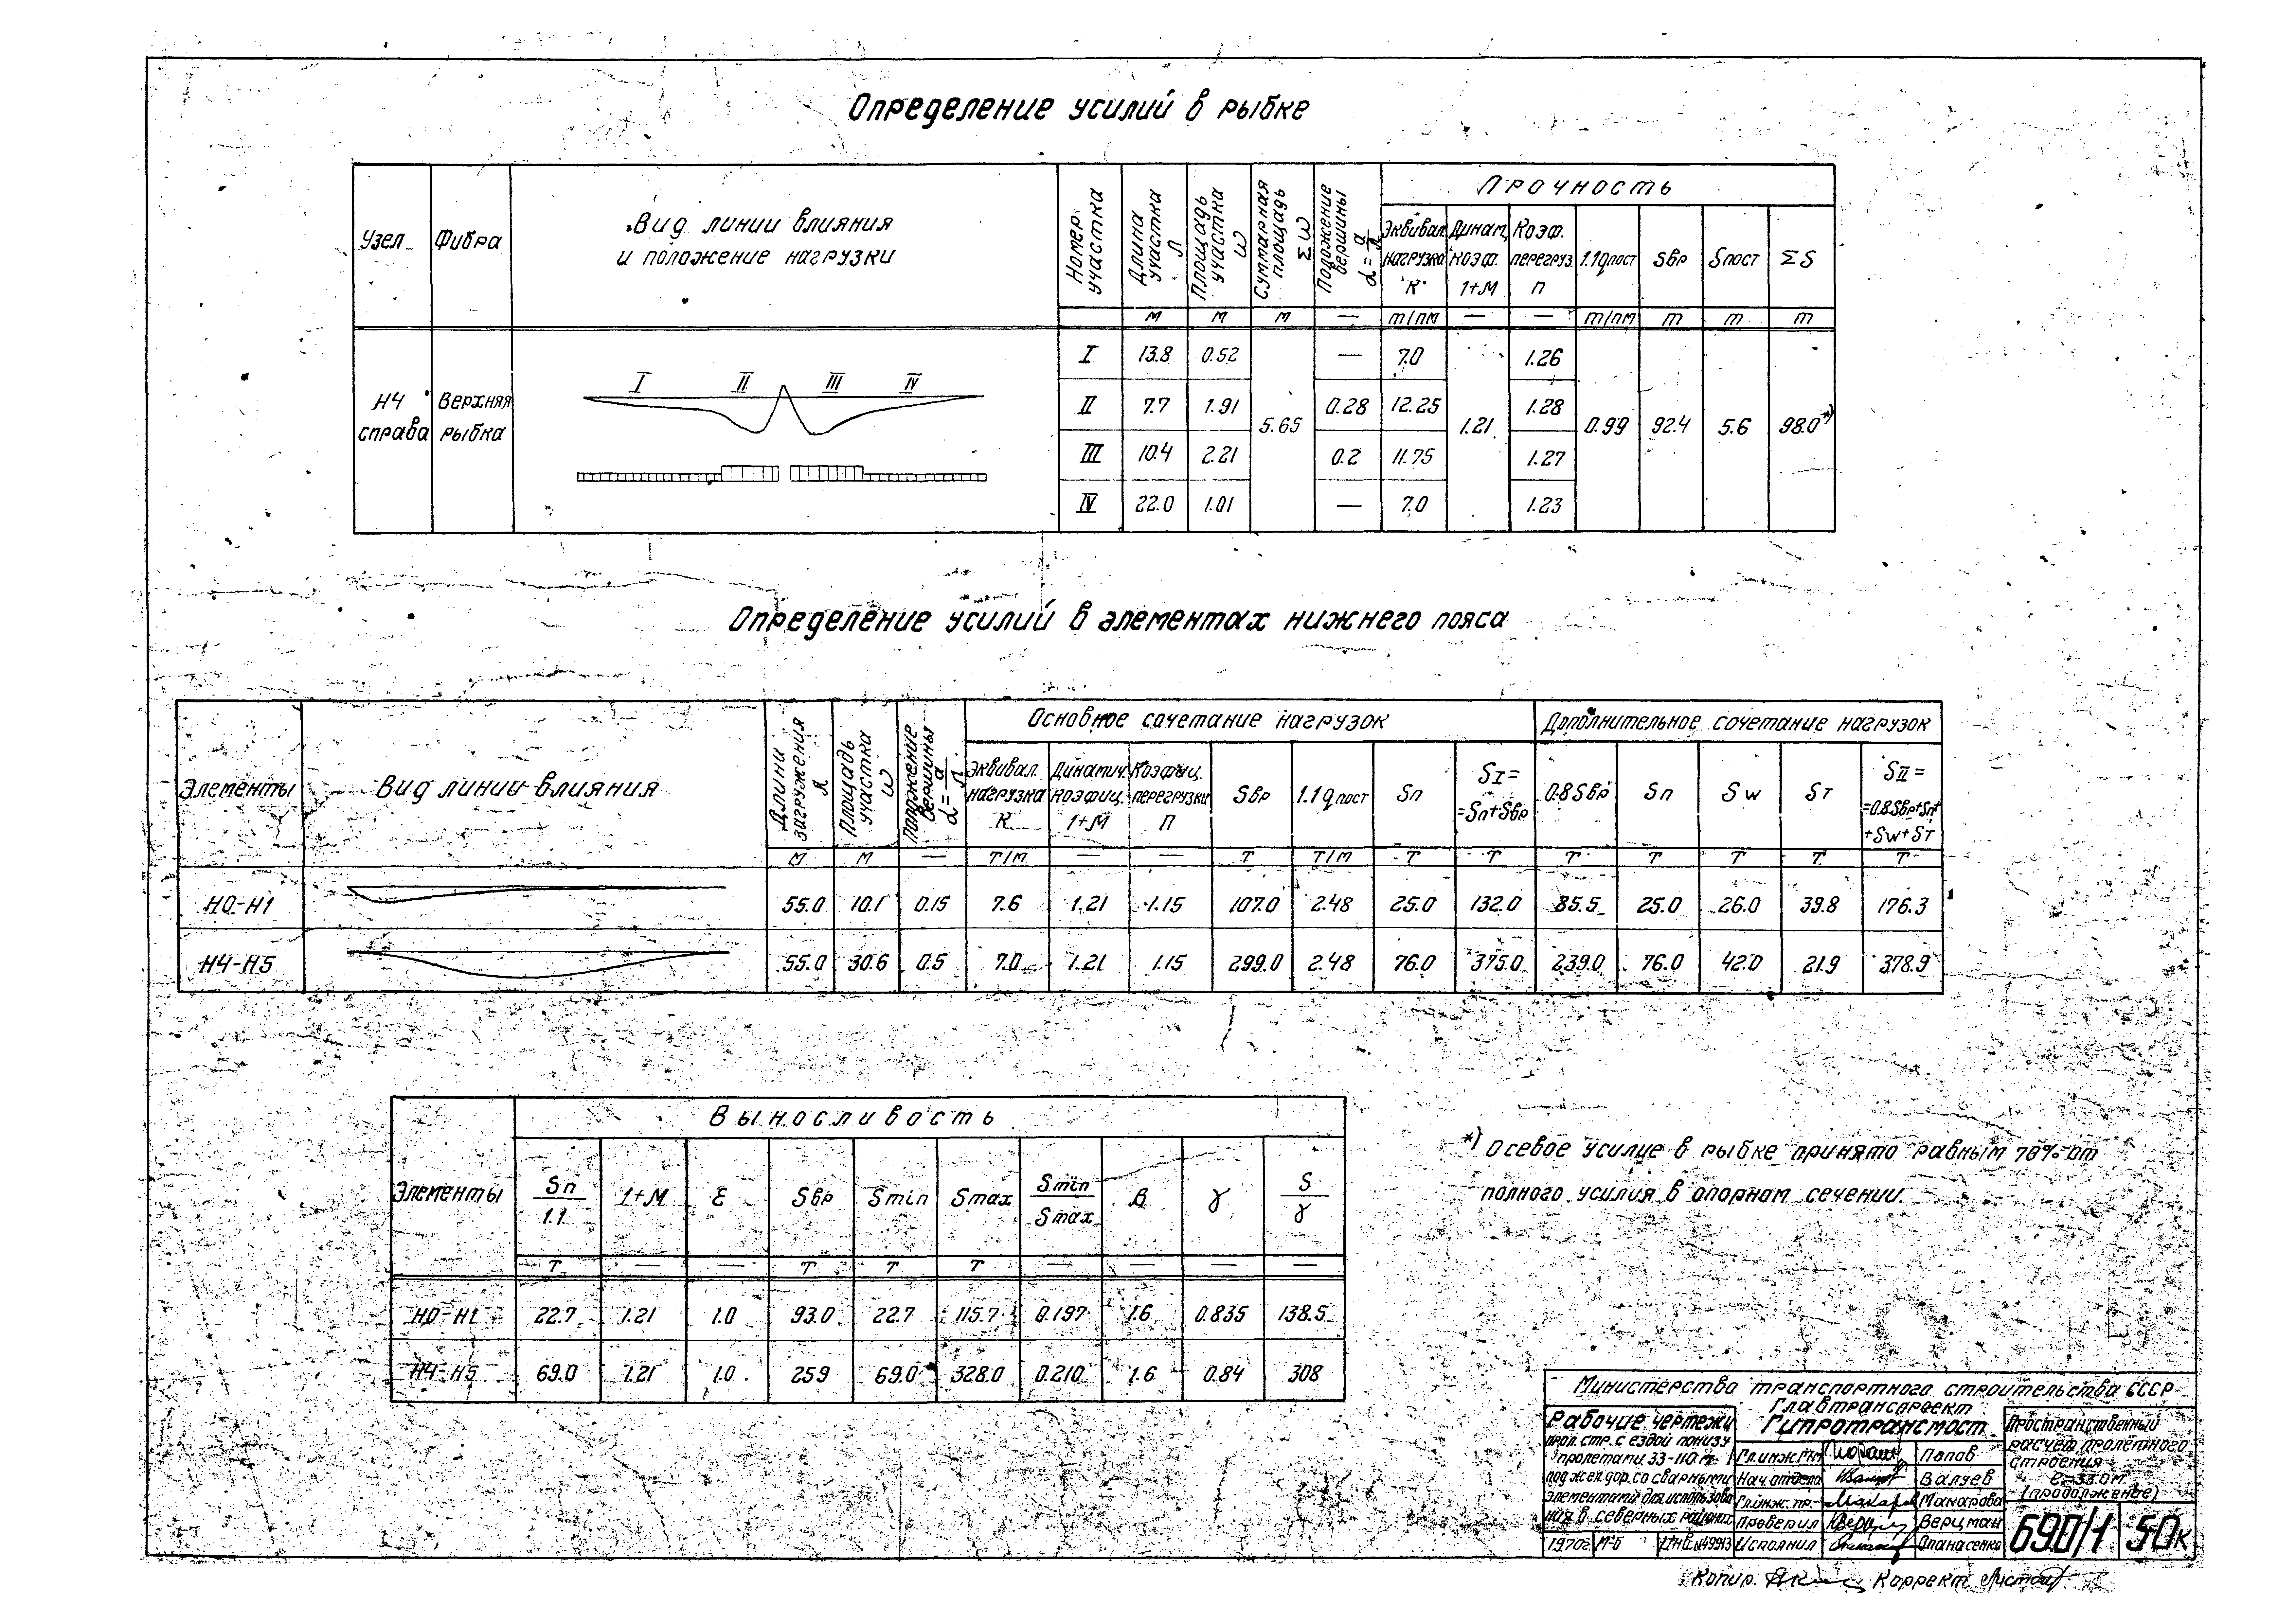 Определение усилий в рыбке
Узел
Фибра
Вид линии влияния
и положение нагрузки
Номер участка
Длина участка λ
Площадь участка ω
Суммарная площадь Σω
Положение вершины α = a/λ
Прочность
Эквивал. нагрузка "К"
Динам. коэф. 1+М
Коэф. перегруз. п
1.1qпост
Sвр
Sпост
ΣS
м м м — т/пм — — т/пм т т т
Н4 справа
Верхняя рыбка
I II III IV
I 13.8 0.52 — 7.0 1.26
II 7.7 1.91 0.28 12.25 1.28
5.65 1.21 0.99 92.4 5.6 98.0*)
III 10.4 2.21 0.2 11.75 1.27
IV 22.0 1.01 — 7.0 1.23
Определение усилий в элементах нижнего пояса
Элементы
Вид линии влияния
Длина загружения λ
Площадь участка ω
Положение вершины α = a/λ
Основное сочетание нагрузок
Эквивал. нагрузка К
Динамич. коэфиц. 1+М
Коэфиц. перегрузки п
Sвр
1.1qпост
Sп
SI = =Sп+Sвр
Дополнительное сочетание нагрузок
0.8Sвр
Sп
Sw
Sт
SII = =0.8Sвр+Sп+ +Sw+Sт
м м — т/м — — т т/м т т т т т т т
Н0-Н1 55.0 10.1 0.15 7.6 1.21 1.15 107.0 2.48 25.0 132.0 85.5 25.0 26.0 39.8 176.3
Н4-Н5 55.0 30.6 0.5 7.0 1.21 1.15 299.0 2.48 76.0 375.0 239.0 76.0 42.0 21.9 378.9
Выносливость
Элементы
Sп/1.1
1+М
ε
Sвр
Smin
Smax
Smin/Smax
β
γ
S/γ
т — — т т т — — — —
Н0-Н1 22.7 1.21 1.0 93.0 22.7 115.7 0.197 1.6 0.835 138.5
Н4-Н5 69.0 1.21 1.0 259 69.0 328.0 0.210 1.6 0.84 308
*) Осевое усилие в рыбке принято равным 70% от
полного усилия в опорном сечении.
Министерство транспортного строительства СССР
Главтранспроект
Гипротрансмост
Рабочие чертежи
прол. стр. с ездой понизу
пролетами 33-110 м
под жел. дор. со сварными
элементами для использова
ния в северных районах
1970г. М-б Инв. №49913
Гл. инж. ГТМ Попов
Нач. отдела Валуев
Гл. инж. пр. Макарова
Проверил Верцман
Исполнил Опанасенко
Пространственный
расчет пролетного
строения
ℓ=33.0м
(продолжение)
690/1 50к
Копир. Коррект.